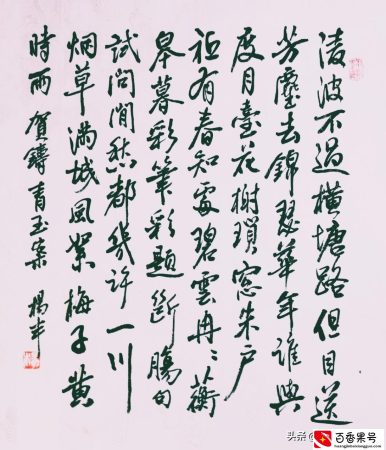 淩波不過橫塘路但目送
芳塵去錦瑟華年誰與
度月臺花榭瑣窓朱戶
祗有春知處碧雲冉〻蘅
皋暮彩筆彩題斷腸句
試問閒愁都幾許一川
烟草滿城風絮梅子黃
時雨 賀鑄青玉案 楊
头条
百香果号